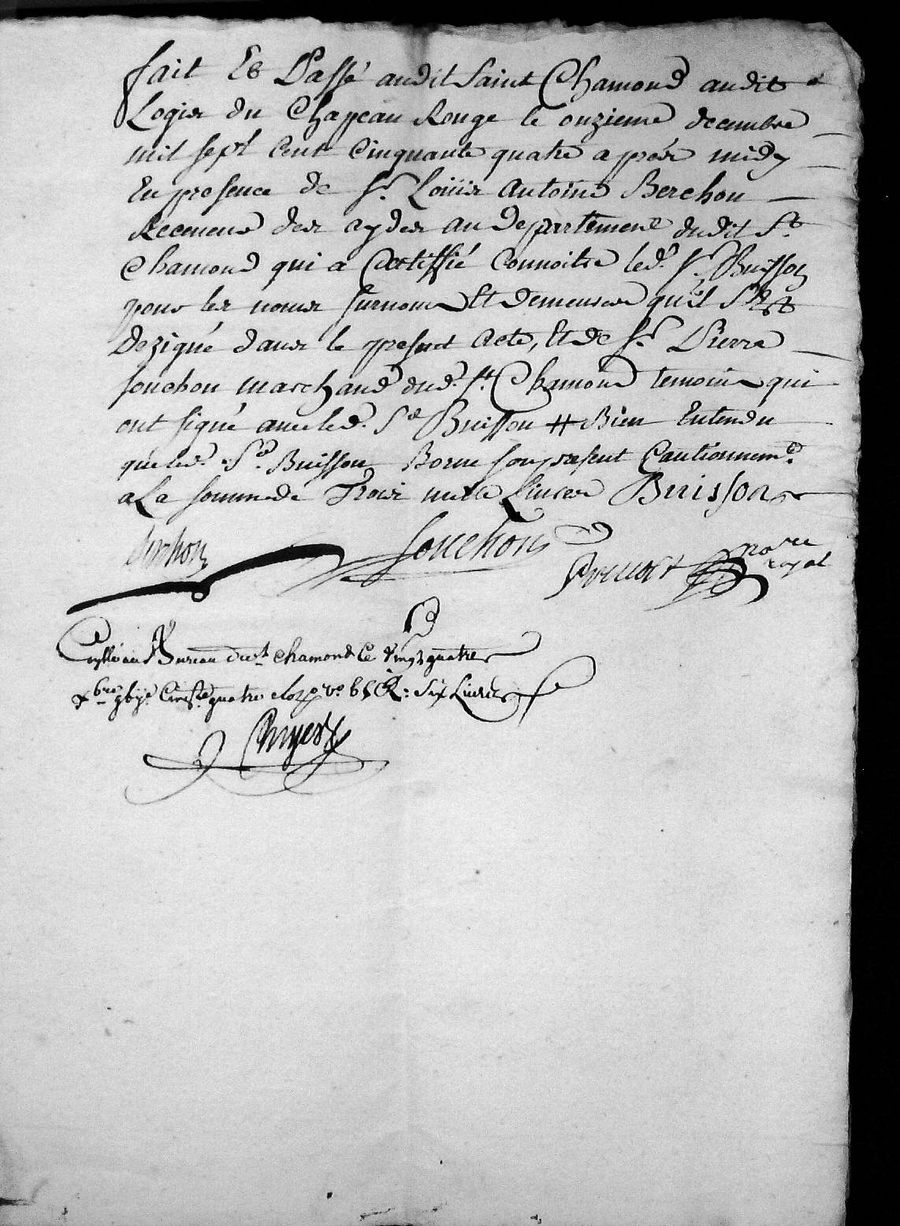 fait Et Passé audit Saint Chamond audit
Logis du Chapeau Rouge le onzieme decembre
mil sept Cent Cinquante quatre apprés midy
En presence de Sr. Loüis Antoine Berchon
Receveur des aydes au departement dudit St.
Chamond qui a Certiffié Connoitre led. Sr. Buisson
pour les noms surnoms Et demeures qu'il s'est
dezigné dans le present acte, Et de Sr. Pierre
Jouchon marchand dud. St. Chamond temoins qui
ont signé avec led. Sr. Buisson # Bien Entendu
que led. Sr. Buisson Borne son present Cautionnemt.
a La somme de Trois mille Livres Buisson
Berchon Jouchon nore
royal
Con̄llé au Bureau de St. chamond Ce vingt quatre
xbre Cinqte. quatre Six Livres